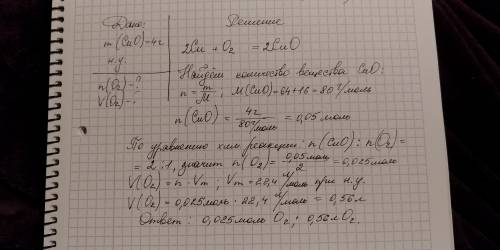 Дано:
m(CuO)=4г
н.у.
n(O₂)-?
V(O₂)-?
Решение
2Cu + O₂ = 2CuO
Найдём количество вещества CuO:
n = m/M; M(CuO)=64+16=80 г/моль
n(CuO) = 4г/80г/моль = 0,05 моль
По уравнению хим. реакции: n(CuO) : n(O₂) =
= 2:1, значит n(O₂) = 0,05моль/2 = 0,025моль
V(O₂) = n · Vm; Vm = 22,4 л/моль при н.у.
V(O₂) = 0,025моль · 22,4 л/моль = 0,56л
Ответ: 0,025моль O₂; 0,56л O₂.